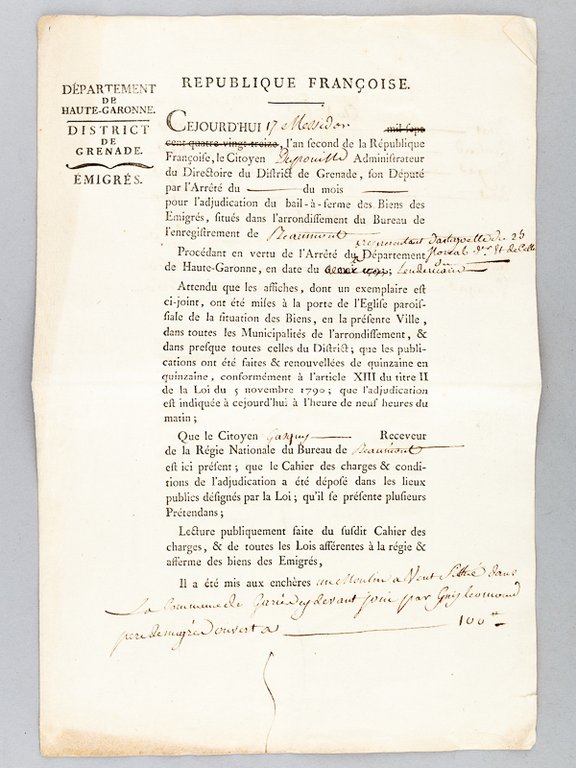 DÉPARTEMENT
DE
HAUTE-GARONNE.
DISTRICT
DE
GRENADE.
ÉMIGRÉS.
REPUBLIQUE FRANÇOISE.
CEJOURD'HUI 17 Messidor mil sept
cent quatre-vingt-treize, l'an second de la République
Françoise, le Citoyen Administrateur
du Directoire du District de Grenade, son Député
par l'Arrêté du du mois
pour l'adjudication du bail-à-ferme des Biens des
Emigrés, situés dans l'arrondissement du Bureau de
l'enregistrement de Beaumont
Procédant en vertu de l'Arrêté du Département
de Haute-Garonne, en date du
Attendu que les affiches, dont un exemplaire est
ci-joint, ont été mises à la porte de l'Eglise parois-
siale de la situation des Biens, en la présente Ville,
dans toutes les Municipalités de l'arrondissement, &
dans presque toutes celles du District; que les publi-
cations ont été faites & renouvellées de quinzaine en
quinzaine, conformément à l'article XIII du titre II
de la Loi du 5 novembre 1790; que l'adjudication
est indiquée à cejourd'hui à l'heure de neuf heures du
matin;
Que le Citoyen Receveur
de la Régie Nationale du Bureau de Beaumont
est ici présent; que le Cahier des charges & condi-
tions de l'adjudication a été déposé dans les lieux
publics désignés par la Loi; qu'il se présente plusieurs
Prétendans;
Lecture publiquement faite du susdit Cahier des
charges, & de toutes les Lois afférentes à la régie &
afferme des biens des Emigrés,
Il a été mis aux enchères un Moulin a Vent Situé dans
La Commune de Gariés cy devant joui par Guy
pere d'emigré ouvert a 100